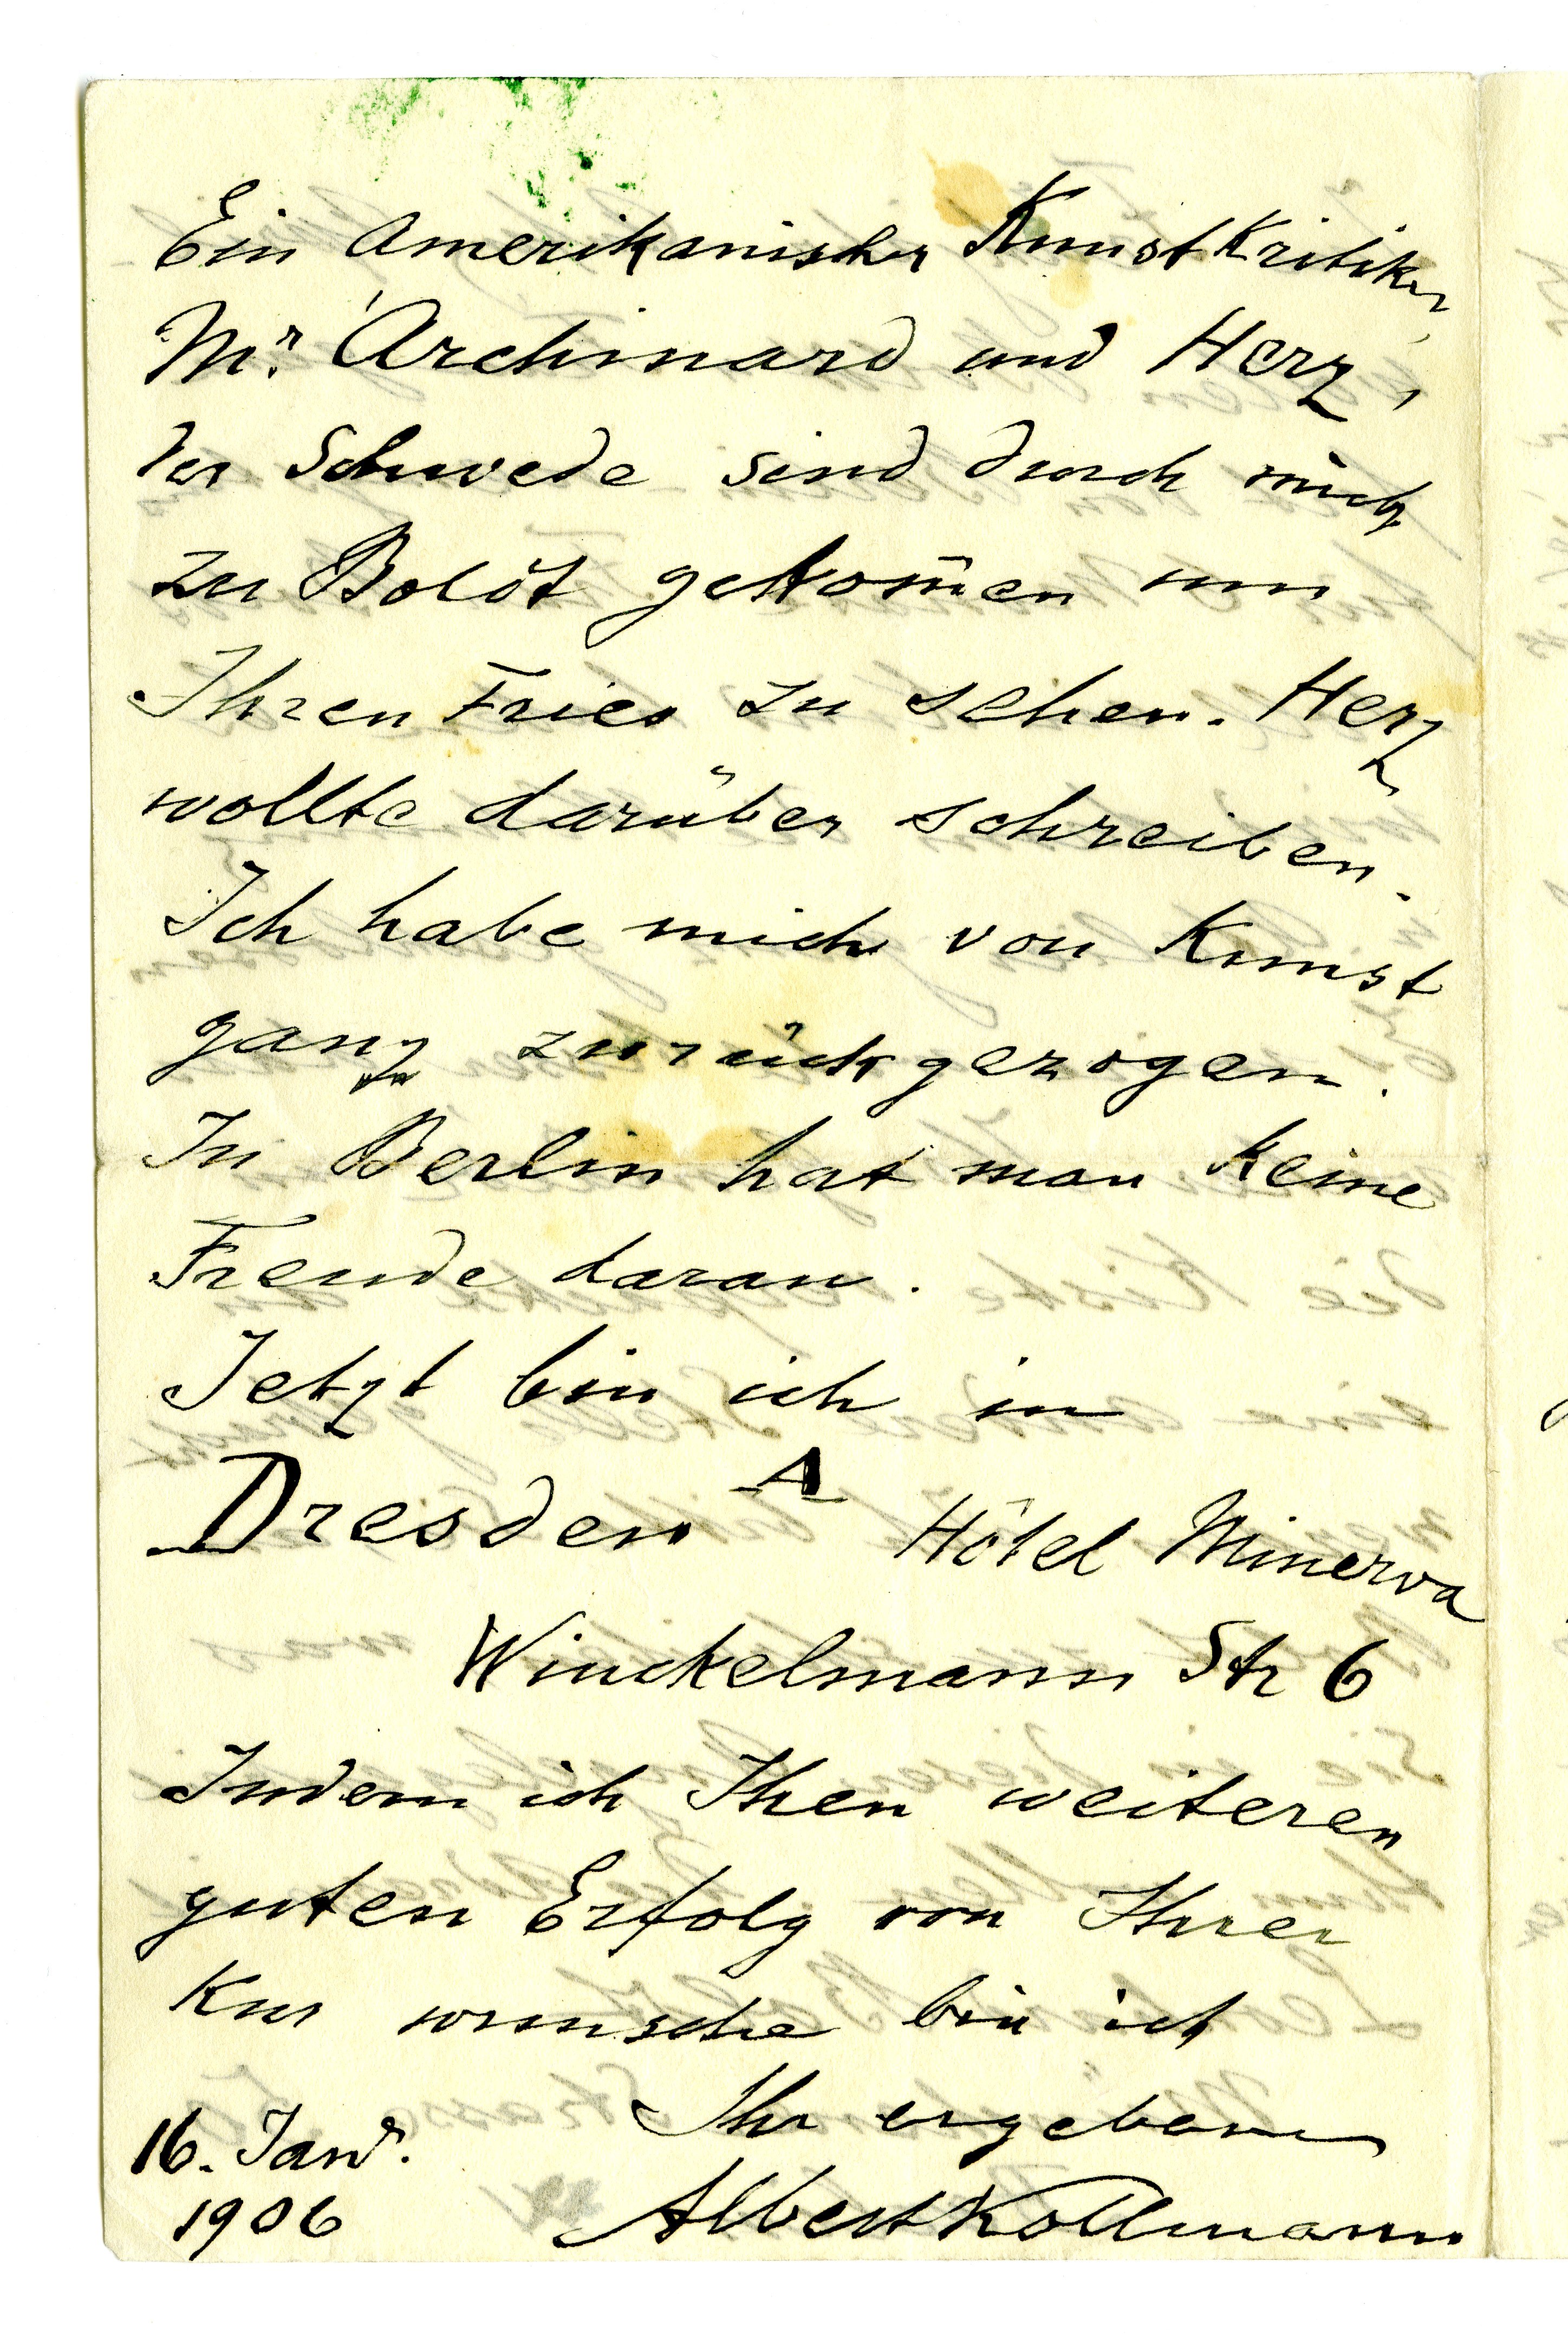 Ein Amerikanischer Kunstkritiker
Mr. Archinard und Herz,
der Schwede sind durch mich
zu Bolôt gekom̄en um
Ihren Fries zu sehen. Herz
wollte darüber schreiben.
Ich habe mich von Kunst
ganz zurückgezogen.
In Berlin hat man keine
Freude daran.
Jetzt bin ich in
Dresden A Hôtel Minerva
Winckelmann Str 6
Indem ich Ihen weiteren
guten Erfolg von Ihrer
Kur wunsche bin ich
Ihr ergebener
16. Janr.
1906 Albert Kollmann